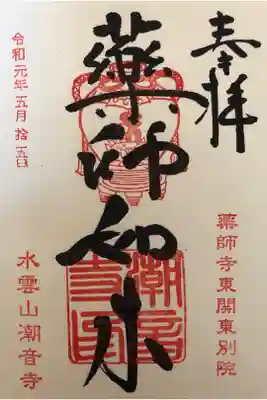 奉拝
薬師寺東関東別院
藥師如来
潮音寺印
水雲山潮音寺
令和元年五月拾五日